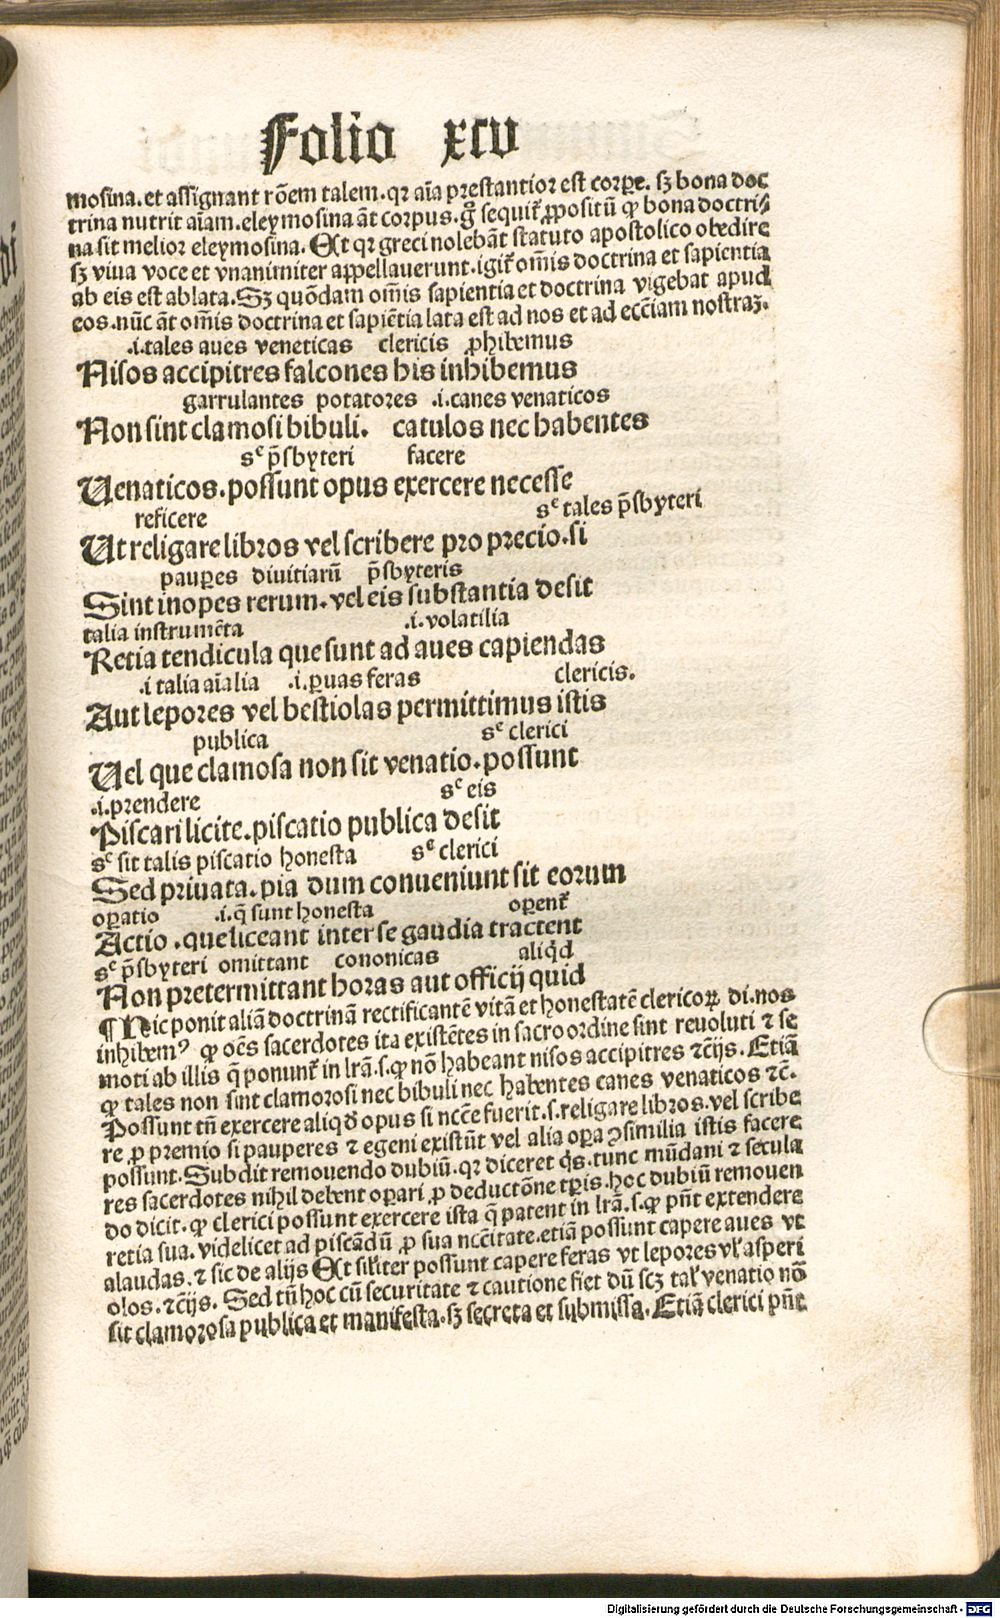 Folio xcv
mosina. et assignant rõem talem. qr aĩa prestantior est corpe. sꝫ bona doc
trina nutrit aĩam. eleymosina aũt corpus. gͦ sequiť ꝓpositũ ꝙ bona doctri⸗
na sit melior eleymosina. Est qr greci nolebãt statuto apostolico obedire
sꝫ viua voce et vnanimiter appellauerunt. igiť om̃is doctrina et sapientia
ab eis est ablata. Sꝫ quõdam om̃is sapientia et doctrina vigebat apud
eos. nũc aũt om̃is doctrina et sapiẽtia lata est ad nos et ad ecc̃iam nostraꝫ.
.i. tales aues veneticas clericis ꝓhibemus
Nisos accipitres falcones his inhibemus
garrulantes potatores .i. canes venaticos
Non sint clamosi bibuli. catulos nec habentes
sᶜ p̃sbyteri facere
Uenaticos. possunt opus exercere necesse
reficere sᶜ tales p̃sbyteri
Ut religare libros vel scribere pro precio. si
pauꝑes diuitiarũ p̃sbyteris
Sint inopes rerum. vel eis substantia desit
talia instrumẽta .i. volatilia
Retia tendicula que sunt ad aues capiendas
.i talia aĩalia .i. ꝑuas feras clericis.
Aut lepores vel bestiolas permittimus istis
publica sᶜ clerici
Uel que clamosa non sit venatio. possunt
.i. prendere sᶜ eis
Piscari licite. piscatio publica desit
sᶜ sit talis piscatio honesta sᶜ clerici
Sed priuata. pia dum conueniunt sit eorum
oꝑatio .i. q̃ sunt honesta oꝑent̃
Actio . que liceant inter se gaudia tractent
sᶜ p̃sbyteri omittant cononicas aliq̇d
Non pretermittant horas aut officij quid
¶ Hic ponit aliã doctrinã rectificantẽ vitã et honestatẽ clericoꝝ di. nos
inhibemꝰ ꝙ oẽs sacerdotes ita existẽtes in sacro ordine sint reuoluti ⁊ se
moti ab illis q̃ ponunť in lr̃a. s. ꝙ nõ habeant nisos accipitres ⁊c̃ijs. Etiã
ꝙ tales non sint clamorosi nec bibuli nec habentes canes venaticos ⁊c̃.
Possunt tñ exercere aliqd̓ opus si ncc̃e fuerit. s. religare libros. vel scribe
re ꝓ premio si pauperes ⁊ egeni existũt vel alia oꝑa ꝯsimilia istis facere
possunt. Subdit remouendo dubiũ. qr diceret q̇s. tunc mũdani ⁊ secula
res sacerdotes nihil debent oꝑari ꝓ deductõne tꝑis. hoc dubiũ remouen
do dicit. ꝙ clerici possunt exercere ista q̃ patent in lr̃a. s. ꝙ pñt extendere
retia sua. videlicet ad piscãdũ ꝓ sua ncc̃itate. etiã possunt capere aues vt
alaudas. ⁊ sic de alijs Est siľiter possunt capere feras vt lepores vľ asperi
olos. ⁊c̃ijs. Sed tñ hoc cũ securitate ⁊ cautione fiet dũ scꝫ taľ venatio nõ
sit clamorosa publica et manifesta. sꝫ secreta et submissa. Etiã clerici pñt
Digitalisierung gefördert durch die Deutsche Forschungsgemeinschaft - DFG